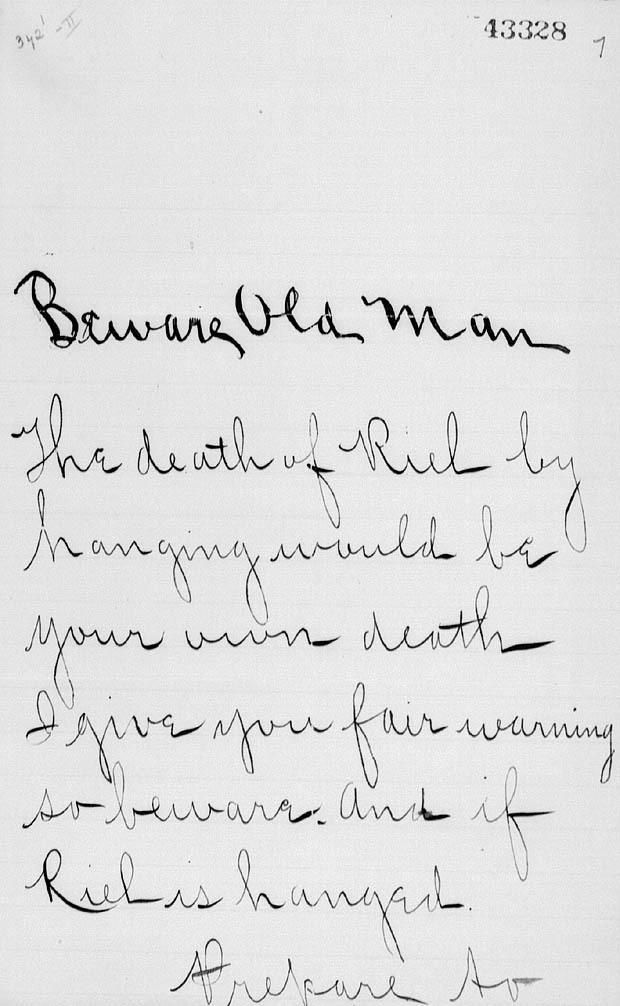 342' - II
43328
7
Beware Old Man
The death of Riel by
hanging would be
your own death
I give you fair warning
so beware. And if
Riel is hanged.
Prepare to